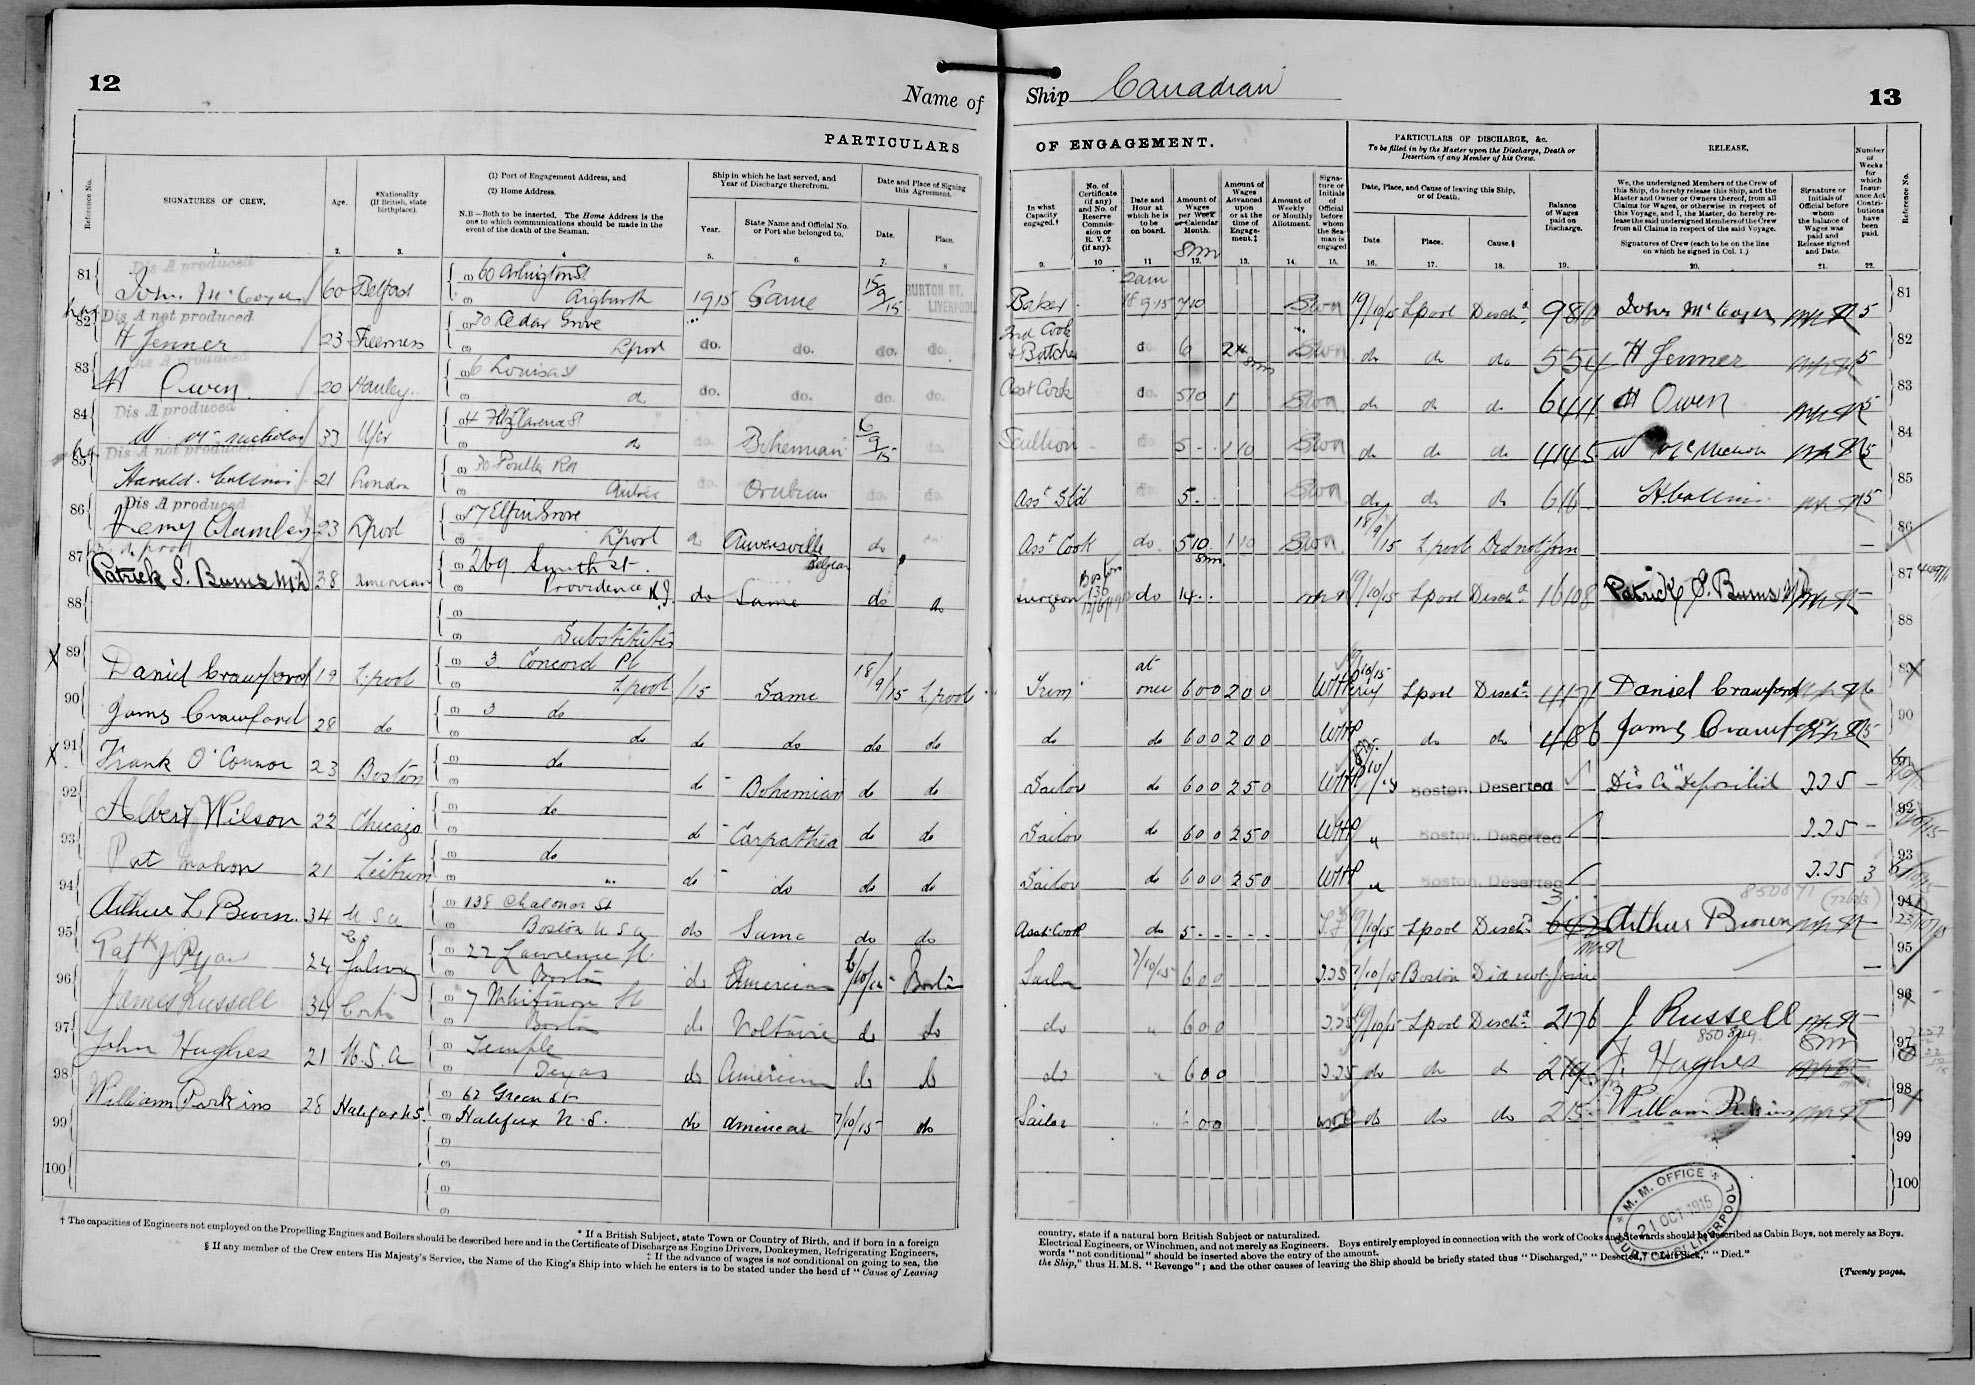 12
Name of
PARTICULARS
Reference No.
SIGNATURES OF CREW.
Age.
*Nationality
(If British, state
birthplace).
(1) Port of Engagement Address, and
(2) Home Address.
N.B.—Both to be inserted. The Home Address is the
one to which communications should be made in the
event of the death of the Seaman.
Ship in which he last served, and
Year of Discharge therefrom.
Year.
State Name and Official No.
or Port she belonged to.
Date and Place of Signing
this Agreement.
Date.
Place.
1. 2. 3. 4 5. 6. 7. 8
81 Dis A produced
John McCoyer 60 Belfast 60 Arlington St
Aigburth 1915 Same 15/9/15 BURTON ST. LIVERPOOL
82 Dis A not produced
H Jenner 23 Sheerness 30 Cedar Grove
Lpool do. do. do. do.
83 Dis A produced
H Owen 20 Hanley 6 Louisa St
do do. do. do. do.
84 Dis A produced
W. McNicholas 33 4 Fitzclarence St
do do. Bohemian 16/9/15 do.
85 Dis A not produced
Harold Collins 21 London 30 Poulter Rd
Aintree do. Orubian do. do.
86 Dis A produced
Henry Chambers 23 Lpool 17 Elfin Grove
Lpool do Anversville Belgian do do.
87
Patrick S. Burns M.D 38 American 269 Smith St.
Providence R.I. do Same do do
88
Substitutes
89 Daniel Crawford 19 Lpool 3 Concord Pl
Lpool /15 Same 18/9/15 Lpool
90 James Crawford 28 do 3 do
do do do do do
91 Frank O'Connor 23 Boston do
do Bohemian do do
92 Albert Wilson 22 Chicago do
do Carpathia do do
93 Pat Mahon 21 Leitrim do
do do do do
94 Arthur L Brown. 34 U S A 138 Chalonor St
Boston U S A do Same do do
95 Patk J Ryan 24 Galway 22 Lawrence St.
Boston do American 6/10/15 Boston
96 James Russell 34 Cork 7 Whitmore St
Boston do Voltavia do do
97 John Hughes 21 U.S.A Temple
Texas do American do do
98 William Perkins 28 Halifax N.S. 62 Green St
Halifax N.S. do American 7/10/15 do
99
100
† The capacities of Engineers not employed on the Propelling Engines and Boilers should be described here and in the Certificate of Discharge as Engine Drivers, Donkeymen, Refrigerating Engineers,
* If a British Subject, state Town or Country of Birth, and if born in a foreign
‡ If the advance of wages is not conditional on going to sea, the
§ If any member of the Crew enters His Majesty's Service, the Name of the King's Ship into which he enters is to be stated under the head of "Cause of Leaving
Ship Canadian
13
OF ENGAGEMENT.
PARTICULARS OF DISCHARGE, &c.
To be filled in by the Master upon the Discharge, Death or
Desertion of any Member of his Crew.
RELEASE.
In what
Capacity
engaged.†
No. of
Certificate
(if any)
and No. of
Reserve
Commis-
sion or
R.V. 2
(if any).
Date and
Hour at
which he is
to be
on board.
Amount of
Wages
per Week
or Calendar
Month.
Amount of
Wages
Advanced
upon
or at the
time of
Engage-
ment.‡
Amount of
Weekly
or Monthly
Allotment.
Signa-
ture or
Initials
of
Official
before
whom
the Sea-
man is
engaged
Date, Place, and Cause of leaving this Ship,
or of Death.
Date.
Place.
Cause.§
Balance
of Wages
paid on
Discharge.
We, the undersigned Members of the Crew of
this Ship, do hereby release this Ship, and the
Master and Owner or Owners thereof, from all
Claims for Wages, or otherwise in respect of
this Voyage, and I, the Master, do hereby re-
lease the said undersigned Members of the Crew
from all Claims in respect of the said Voyage.
Signatures of Crew (each to be on the line
on which he signed in Col. 1.)
Signature or
Initials of
Official before
whom
the balance of
Wages was
paid and
Release signed
and Date.
Number
of
Weeks
for
which
Insur-
ance Act
Contri-
butions
have
been
paid.
Reference No.
9. 10 11 12. 13. 14. 15. 16. 17. 18. 19. 20. 21. 22.
Baker 2am 18 9.15 710 19/10/15 Lpool Disch. John McCoyer 5 81
2nd Cook
+ Butcher do 6 do do do H Jenner 5 82
Asst Cook 510 1 do do do H Owen 5 83
Scullion do 5 110 do do do 4145 5 84
Asst Std 5 do do do 616 H. Collins 5 85
Asst Cook do. 510 110 18/9/15 Lpool Did not join 86
Surgeon Boston do 14 19/10/15 Lpool Disch. Patrick S. Burns M.D 87
88
Trim at once 600 200 WHP 19/10/15 Lpool Disch. 4171 Daniel Crawford 89
do do 600 200 WHP do do 486 James Crawford 5 90
Sailor do 600 250 WHP Boston. Deserted Dis "A" Deposited 91
Sailor do 600 250 WHP " Boston. Deserted 92
Sailor do 600 250 WHP " Boston. Deserted 3 93
850871
Asst Cook do 5 19/10/15 Lpool Disch. Arthur Brown 94
Sailor 7/10/15 600 7/10/15 Boston Did not join 95
do " 600 19/10/15 Lpool Disch. 2176 J Russell 96
do " 600 do do do J. Hughes 97
Sailor " 600 do do do William Perkins 98
99
100
M. M. OFFICE
21 OCT 1915
BURTON ST. LIVERPOOL
country, state if a natural born British Subject or naturalized.
Electrical Engineers, or Winchmen, and not merely as Engineers. Boys entirely employed in connection with the work of Cooks and Stewards should be described as Cabin Boys, not merely as Boys.
words "not conditional" should be inserted above the entry of the amount.
the Ship," thus H.M.S. "Revenge"; and the other causes of leaving the Ship should be briefly stated thus "Discharged," "Deserted," "Left Sick," "Died."
[Twenty pages.